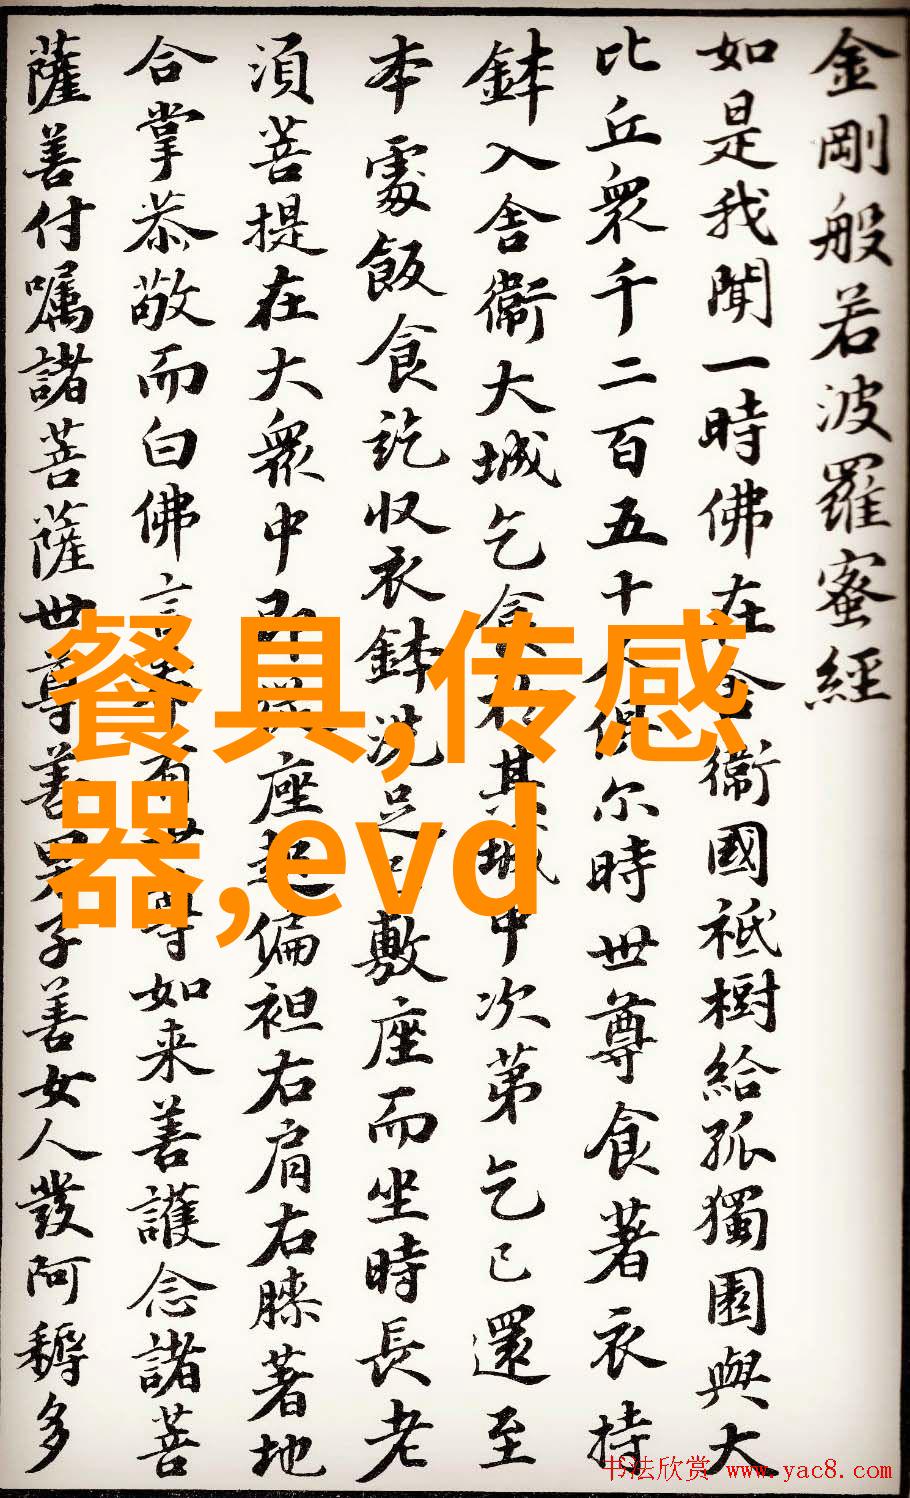 金剛般若波羅蜜經
如是我聞一時佛在舍衞國祇樹給孤獨園與大
比丘衆千二百五十人俱尔時世尊食著衣持
鉢入舍衞大城乞食於其城中次第乞已還至
本處飯食訖收衣鉢洗足已敷座而坐時長老
湏菩提在大衆中即從座起偏袒右肩右膝著地
合掌恭敬而白佛言希有世尊如来善護念諸菩
薩善付嘱諸菩薩世尊善男子善女人發阿耨多
餐具,传感
器,evd
书法欣赏 www.yac8.com